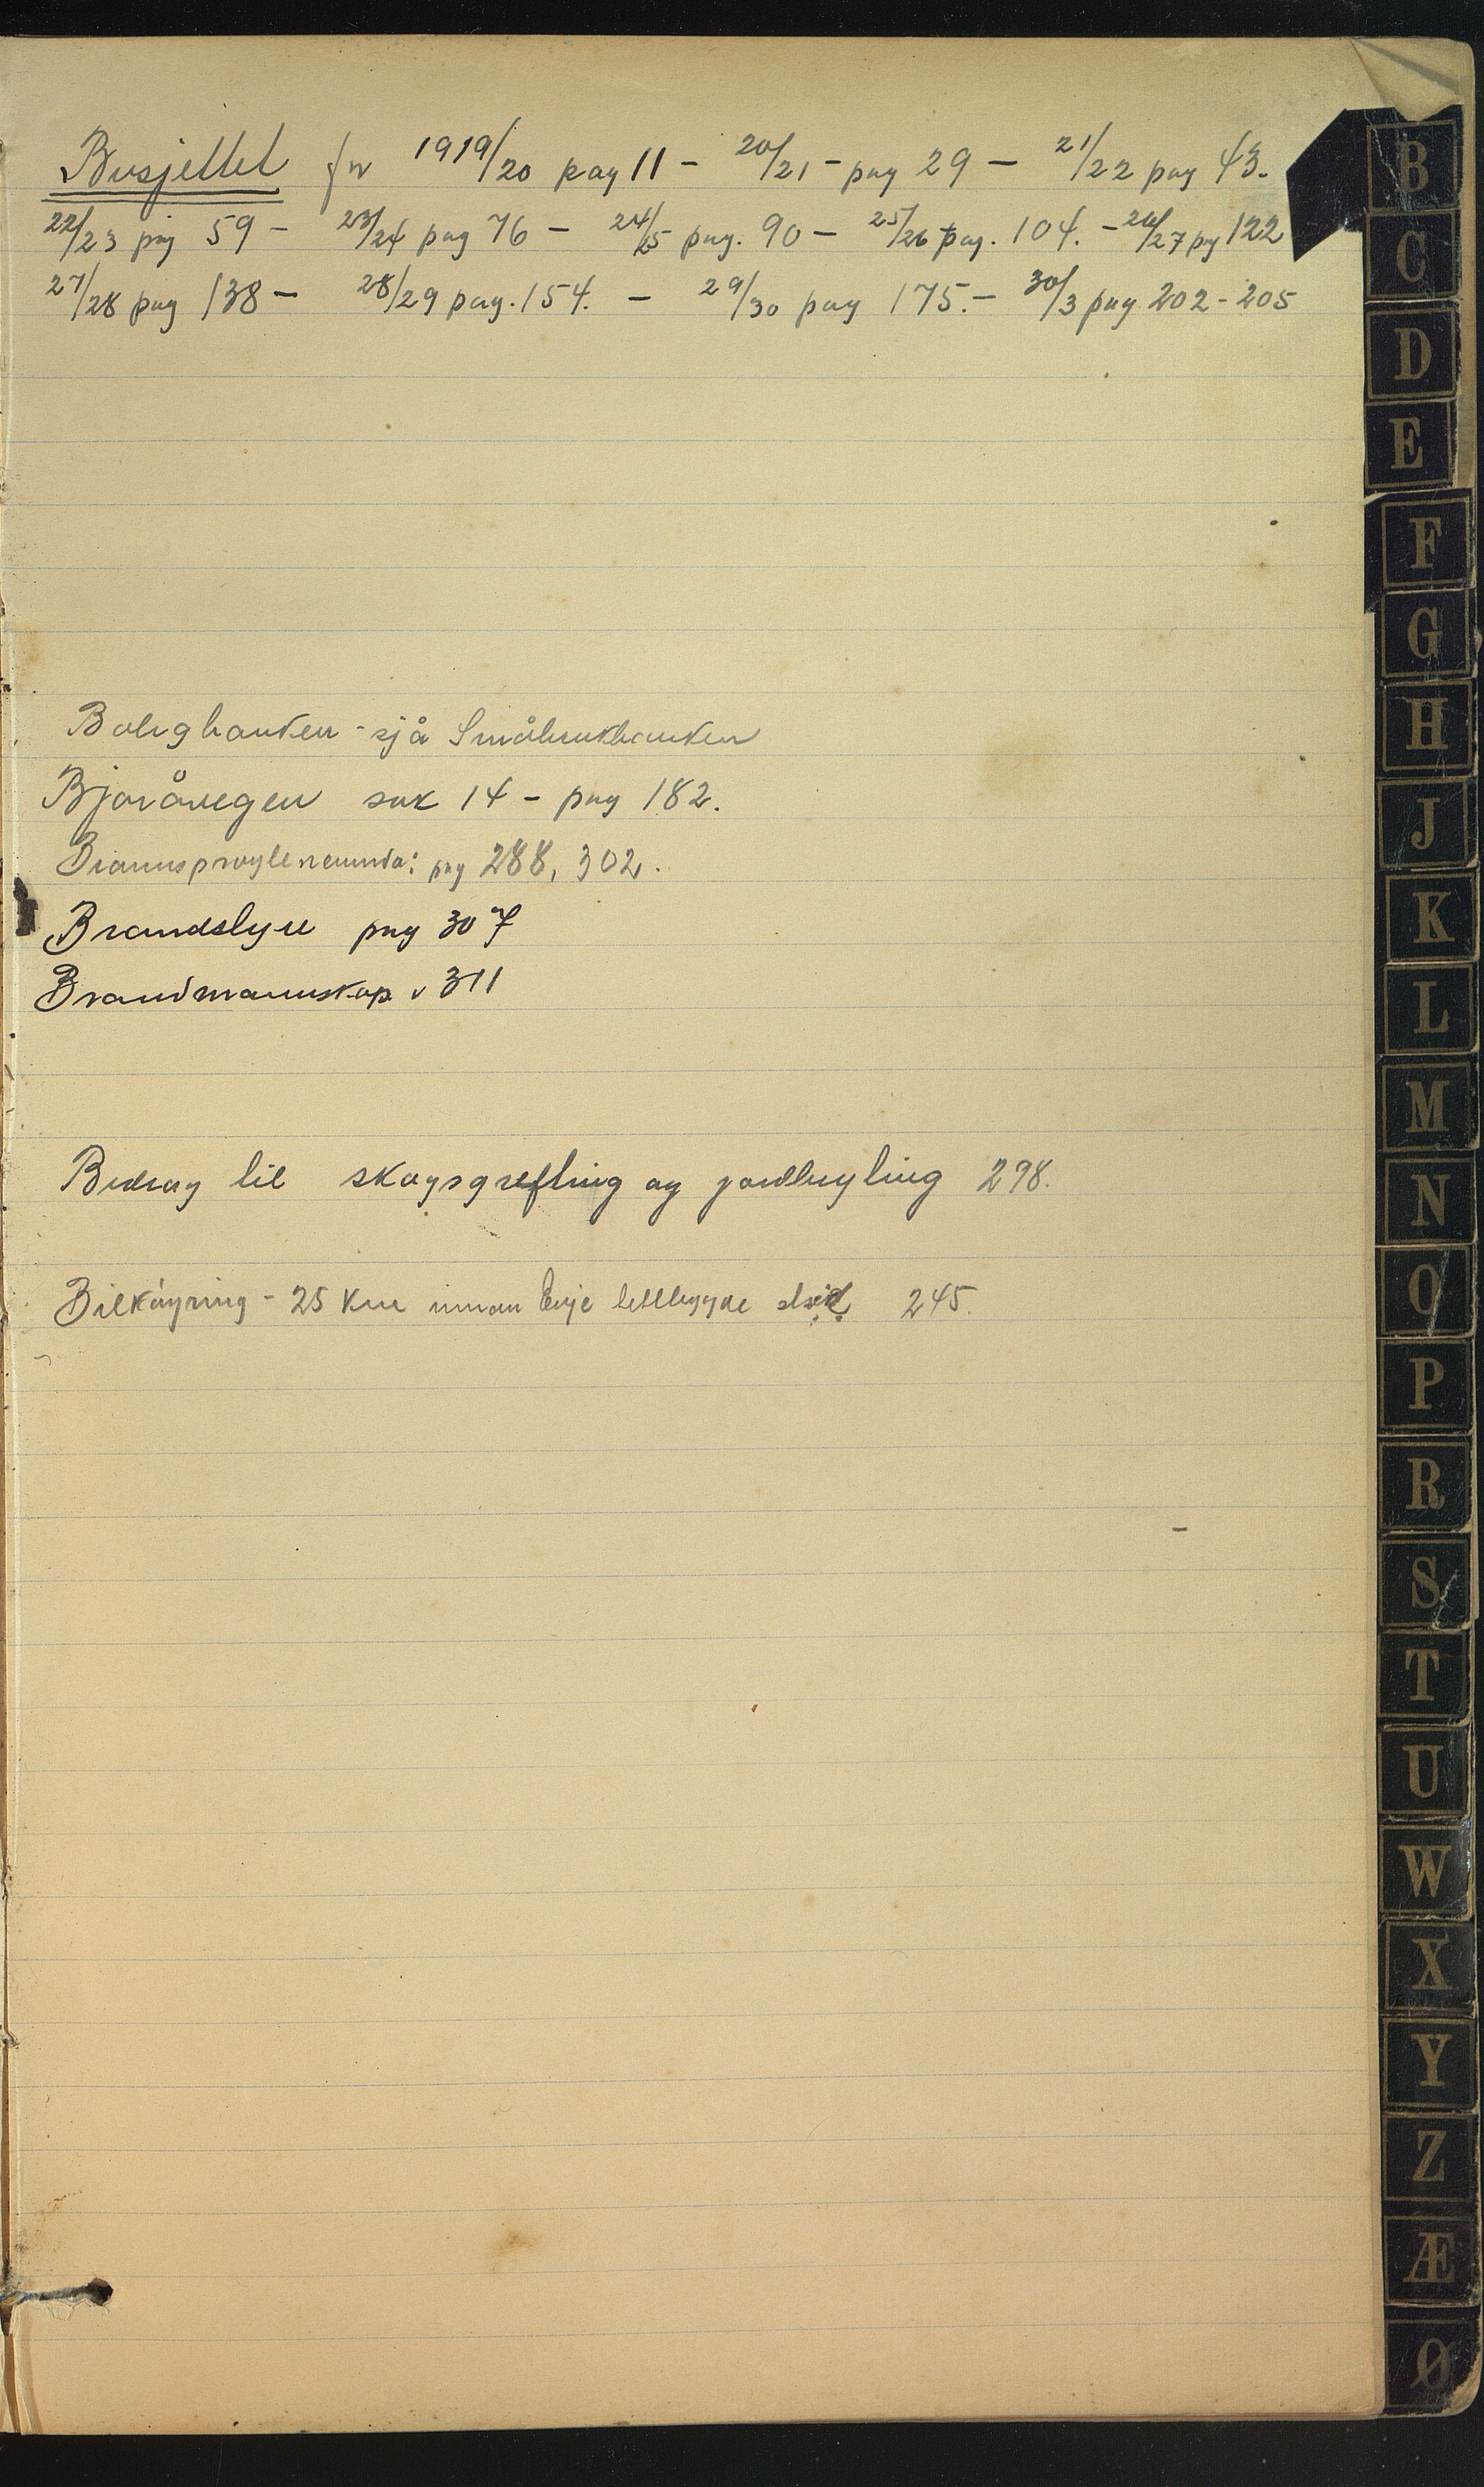 Busjettet for 1919/20 pag 11 - 20/21 - pag 29 - 21/22 pag 43.
22/23 pag 59 - 23/24 pag 76 - 24/25 pag. 90 - 25/26 pag. 104. - 26/27 pg 122
27/28 pag 138 - 28/29 pag. 154. - 29/30 pag 175. - 30/3 pag 202 - 205
Boligbanken - sjå Småbrukbanken
Bjoråvegen sak 14 - pag 182.
Brannsprøytenemnda: pag 288, 302.
Brandstyre pag 307
Brandmannskap 311
Bidrag til skogsgrøfting og jordbryting 298.
Bilkøyring - 25 Km innan Evje tettbygde 245.
B
C
D
E
F
G
H
J
K
L
M
N
O
P
R
S
T
U
W
X
Y
Z
Æ
Ø